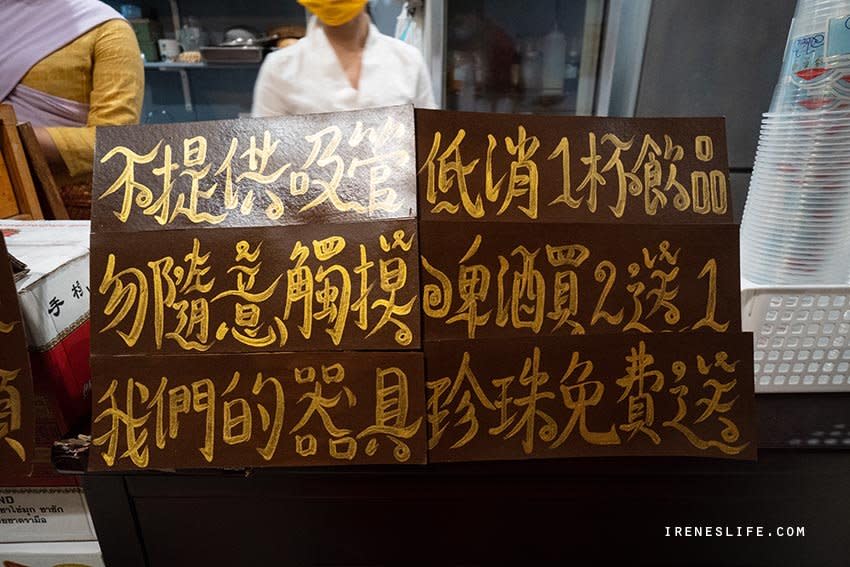 不提供吸管
勿隨意觸摸
我們的器具
低消1杯飲品
啤酒買2送1
珍珠免費送
IRENESLIFE.COM